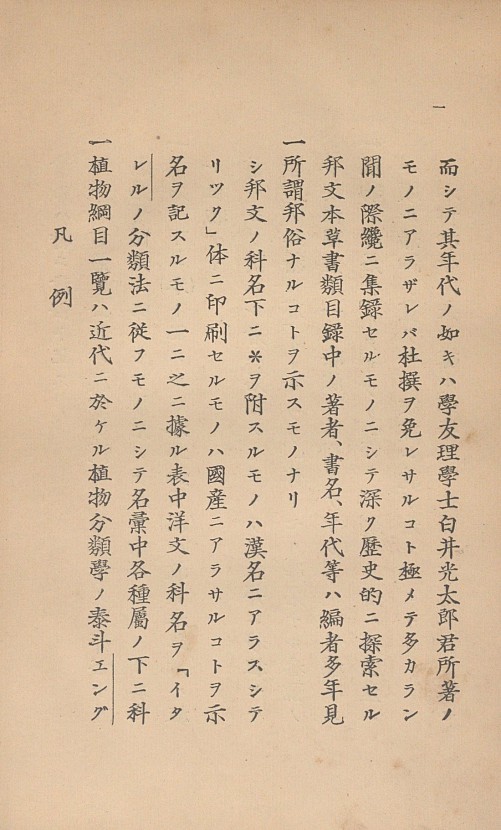 凡例
一植物綱目一覽ハ近代ニ於ケル植物分類學ノ泰斗エング
レルノ分類法ニ從フモノニシテ名彙中各種屬ノ下ニ科
名ヲ記スルモノ一ニ之ニ據ル表中洋文ノ科名ヲ「イタ
リツク」体ニ印刷セルモノハ國産ニアラサルコトヲ示
シ邦文ノ科名下ニ＊ヲ附スルモノハ漢名ニアラスシテ
一所謂邦俗ナルコトヲ示スモノナリ
邦文本草書類目録中ノ著者、書名、年代等ハ編者多年見
聞ノ際纔ニ集録セルモノニシテ深ク歷史的ニ探索セル
モノニアラザレバ杜撰ヲ免レサルコト極メテ多カラン
而シテ其年代ノ如キハ學友理學士白井光太郎君所著ノ
一